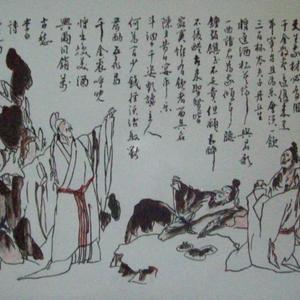 三百杯岑夫子丹丘生
將進酒杯莫停與君歌
一曲請君為我傾耳聽
鐘鼓饌玉不足貴但願長醉
不復醒古來聖賢皆
寂寞惟有飲者留其名
陳王昔日宴平樂
斗酒十千恣歡謔主人
何為言少錢徑須沽取對
君酌五花馬
千金裘呼兒
將出換美酒
與爾同銷萬
古愁
李白
詩